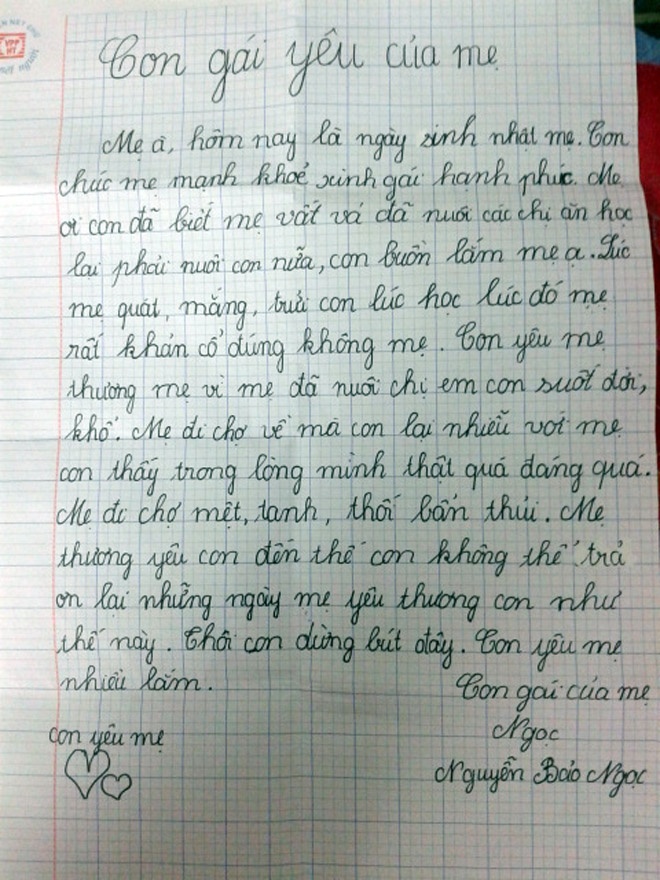 VPP
HT
Con gái yêu của mẹ
Mẹ à, hôm nay là ngày sinh nhật mẹ. Con
chúc mẹ mạnh khoẻ xinh gái hạnh phúc. Mẹ
ơi con đã biết mẹ vất vả đã nuôi các chị ăn học
lại phải nuôi con nữa, con buồn lắm mẹ ạ. Lúc
mẹ quát, mắng, trửi con lúc học lúc đó mẹ
rất khản cổ đúng không mẹ. Con yêu mẹ
thương mẹ vì mẹ đã nuôi chị em con suốt đời,
khổ. Mẹ đi chợ về mà con lại nhiễu với mẹ
con thấy trong lòng mình thật quá đáng quá.
Mẹ đi chợ mệt, tanh, thối bẩn thủi. Mẹ
thương yêu con đến thế con không thể trả
ơn lại những ngày mẹ yêu thương con như
thế này. Thôi con dừng bút đây. Con yêu mẹ
nhiều lắm.
Con gái của mẹ
Ngọc
con yêu mẹ
Nguyễn Bảo Ngọc